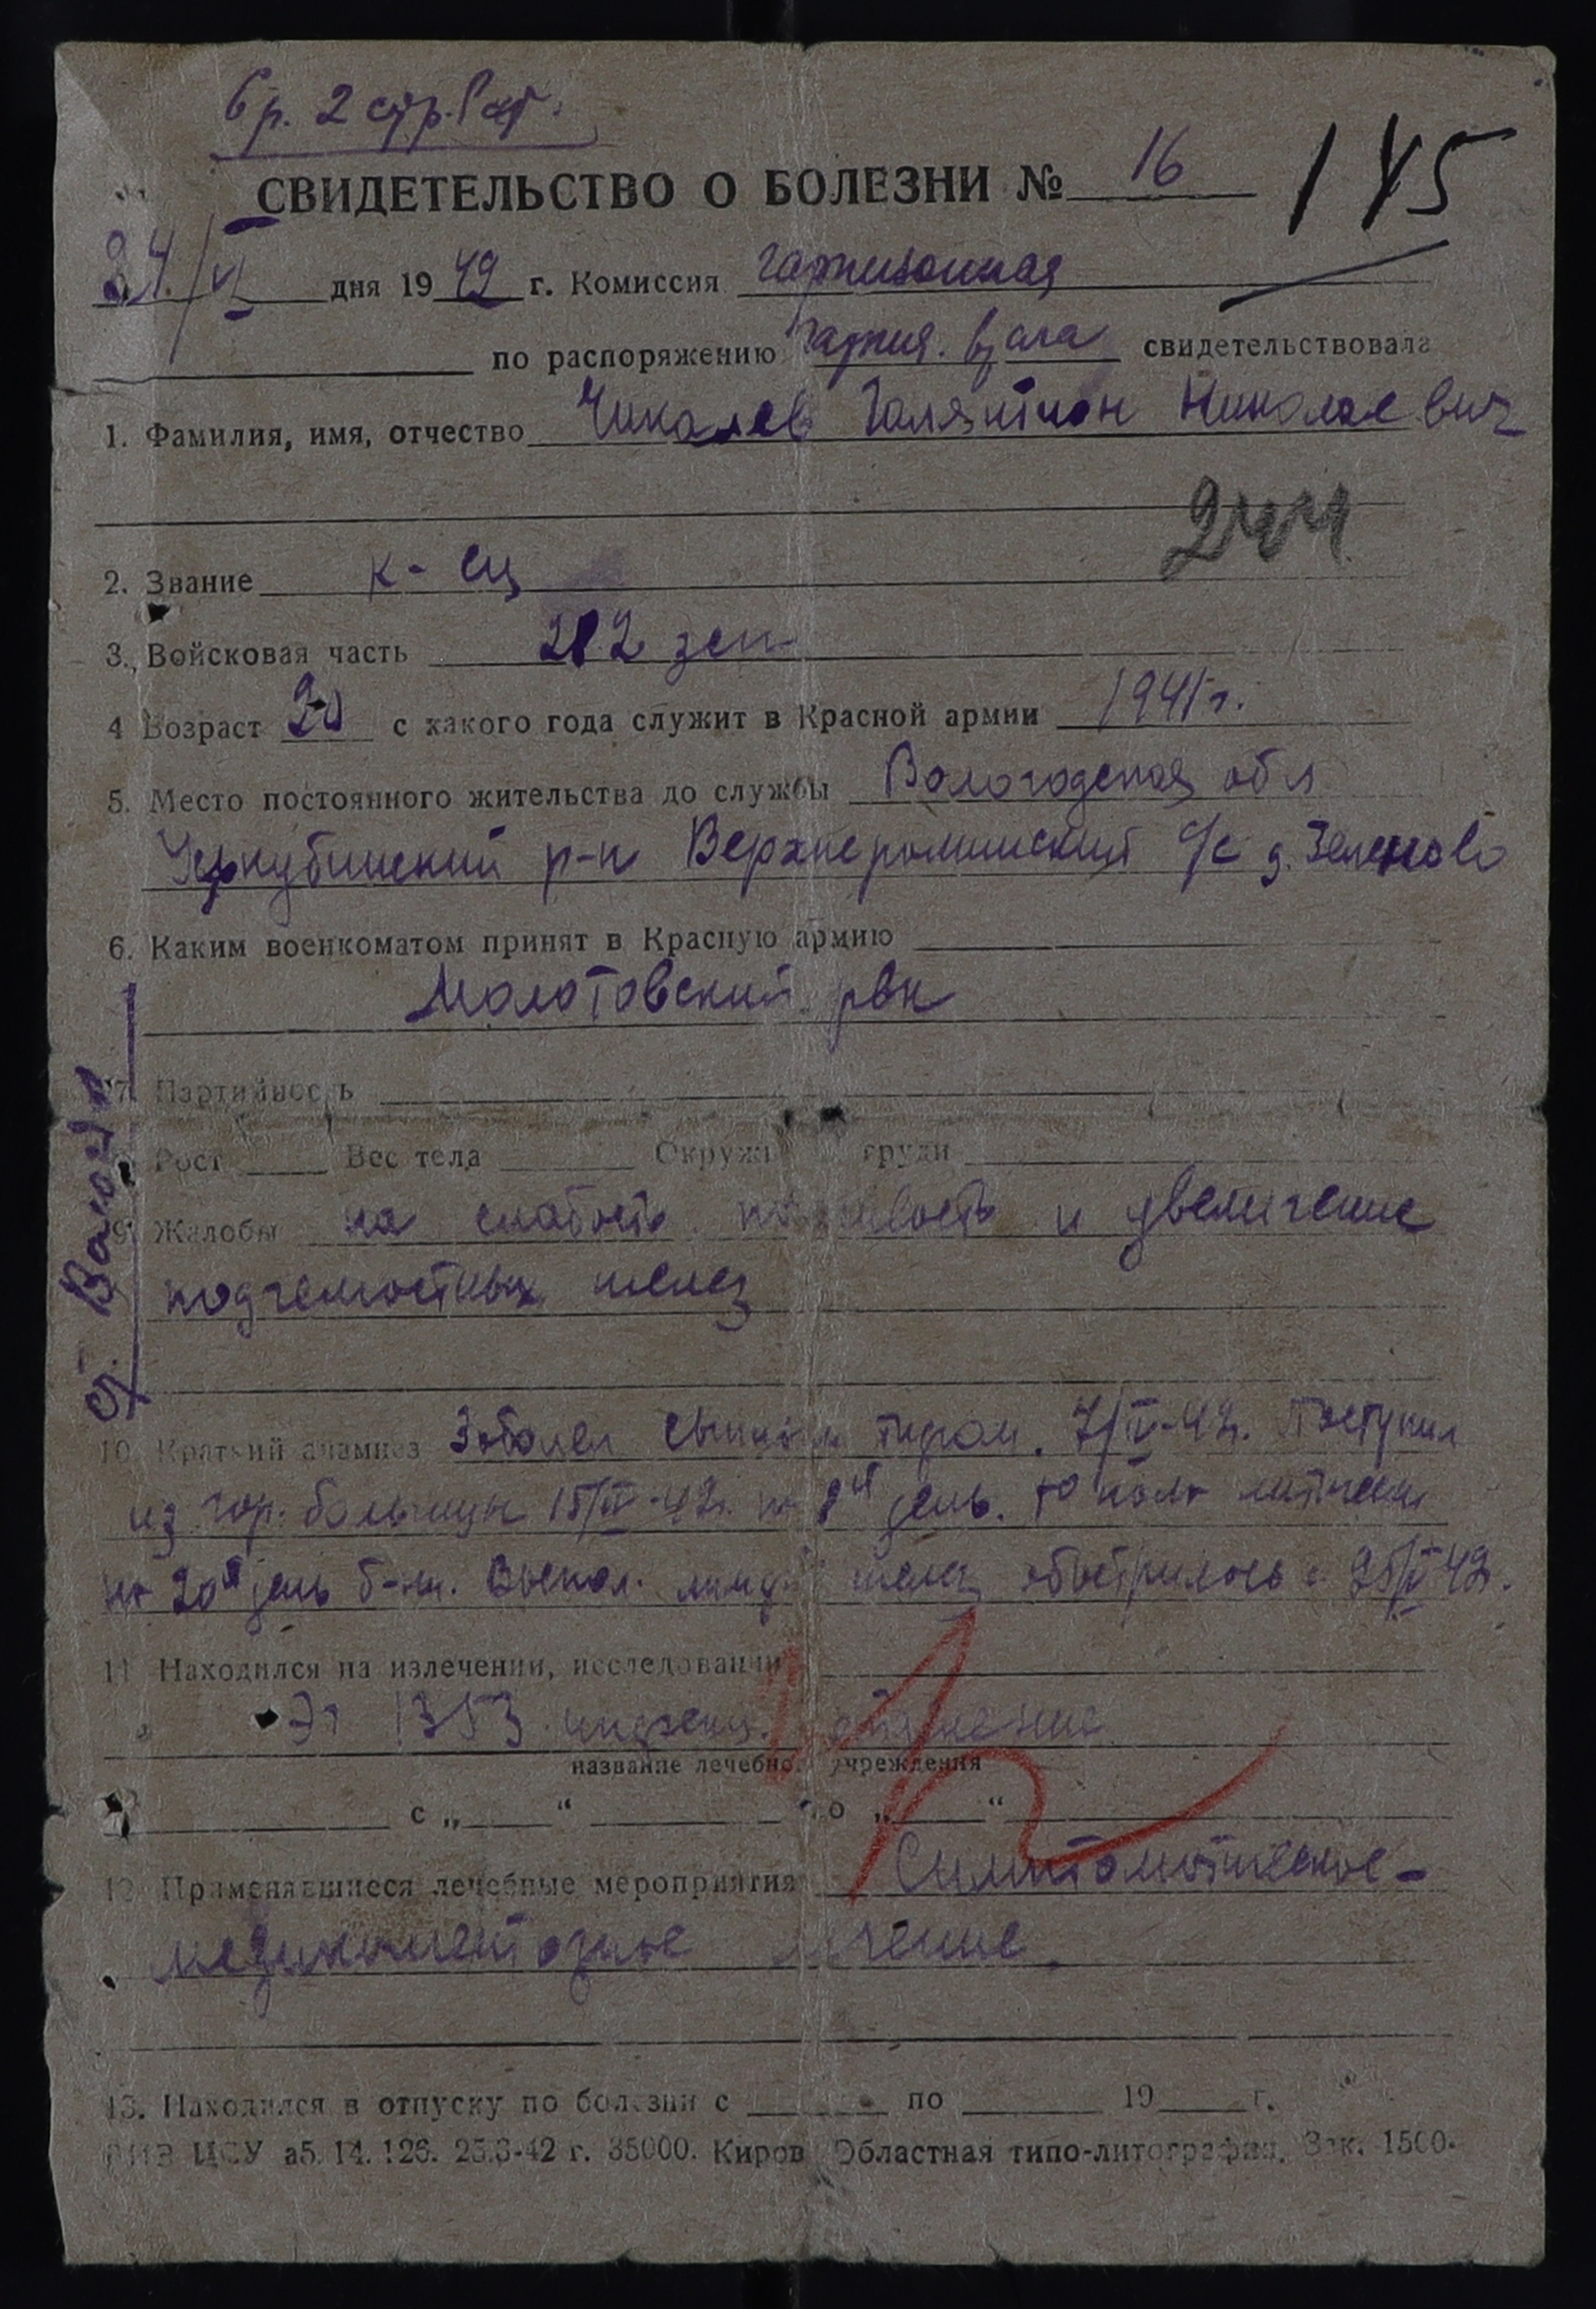 СВИДЕТЕЛЬСТВО О БОЛЕЗНИ № 16
145
24/VI дня 1942 г. Комиссия гарнизонная
по распоряжению гарниз. врача свидетельствовала
1. Фамилия, имя, отчество Чикалев Николаевич
244
2. Звание к-ец
3. Войсковая часть 282 зсп
4 Возраст 20 с какого года служит в Красной армии 1941 г.
5. Место постоянного жительства до службы Вологодская обл
р-н с/с д. Зеленово
6. Каким военкоматом принят в Красную армию
Молотовский рвк
7. Партийность
Рост Вес тела Окружн груди
9. Жалобы на слабость и увеличение
подчелюстных желез
10. Краткий анамнез Заболел сыпным тифом. 7/IV-42г. Поступил
из гор. больницы 15/IV-42г. на 8й день. t°
на 20й день б-ни. Воспал. лимф. желез обострилось с 25/V 42.
11. Находился на излечении, исследовании
ЭГ 1353 инфекц. отделение
название лечебно учреждения
с „ “ по „ “
12. Применявшиеся лечебные мероприятия Симптоматическое-
медикаментозное лечение.
13. Находился в отпуску по болезни с по 19 г.
ЦСУ а5. 14. 126. 25.3-42 г. 35000. Киров Областная типо-литография. Зак. 1500.